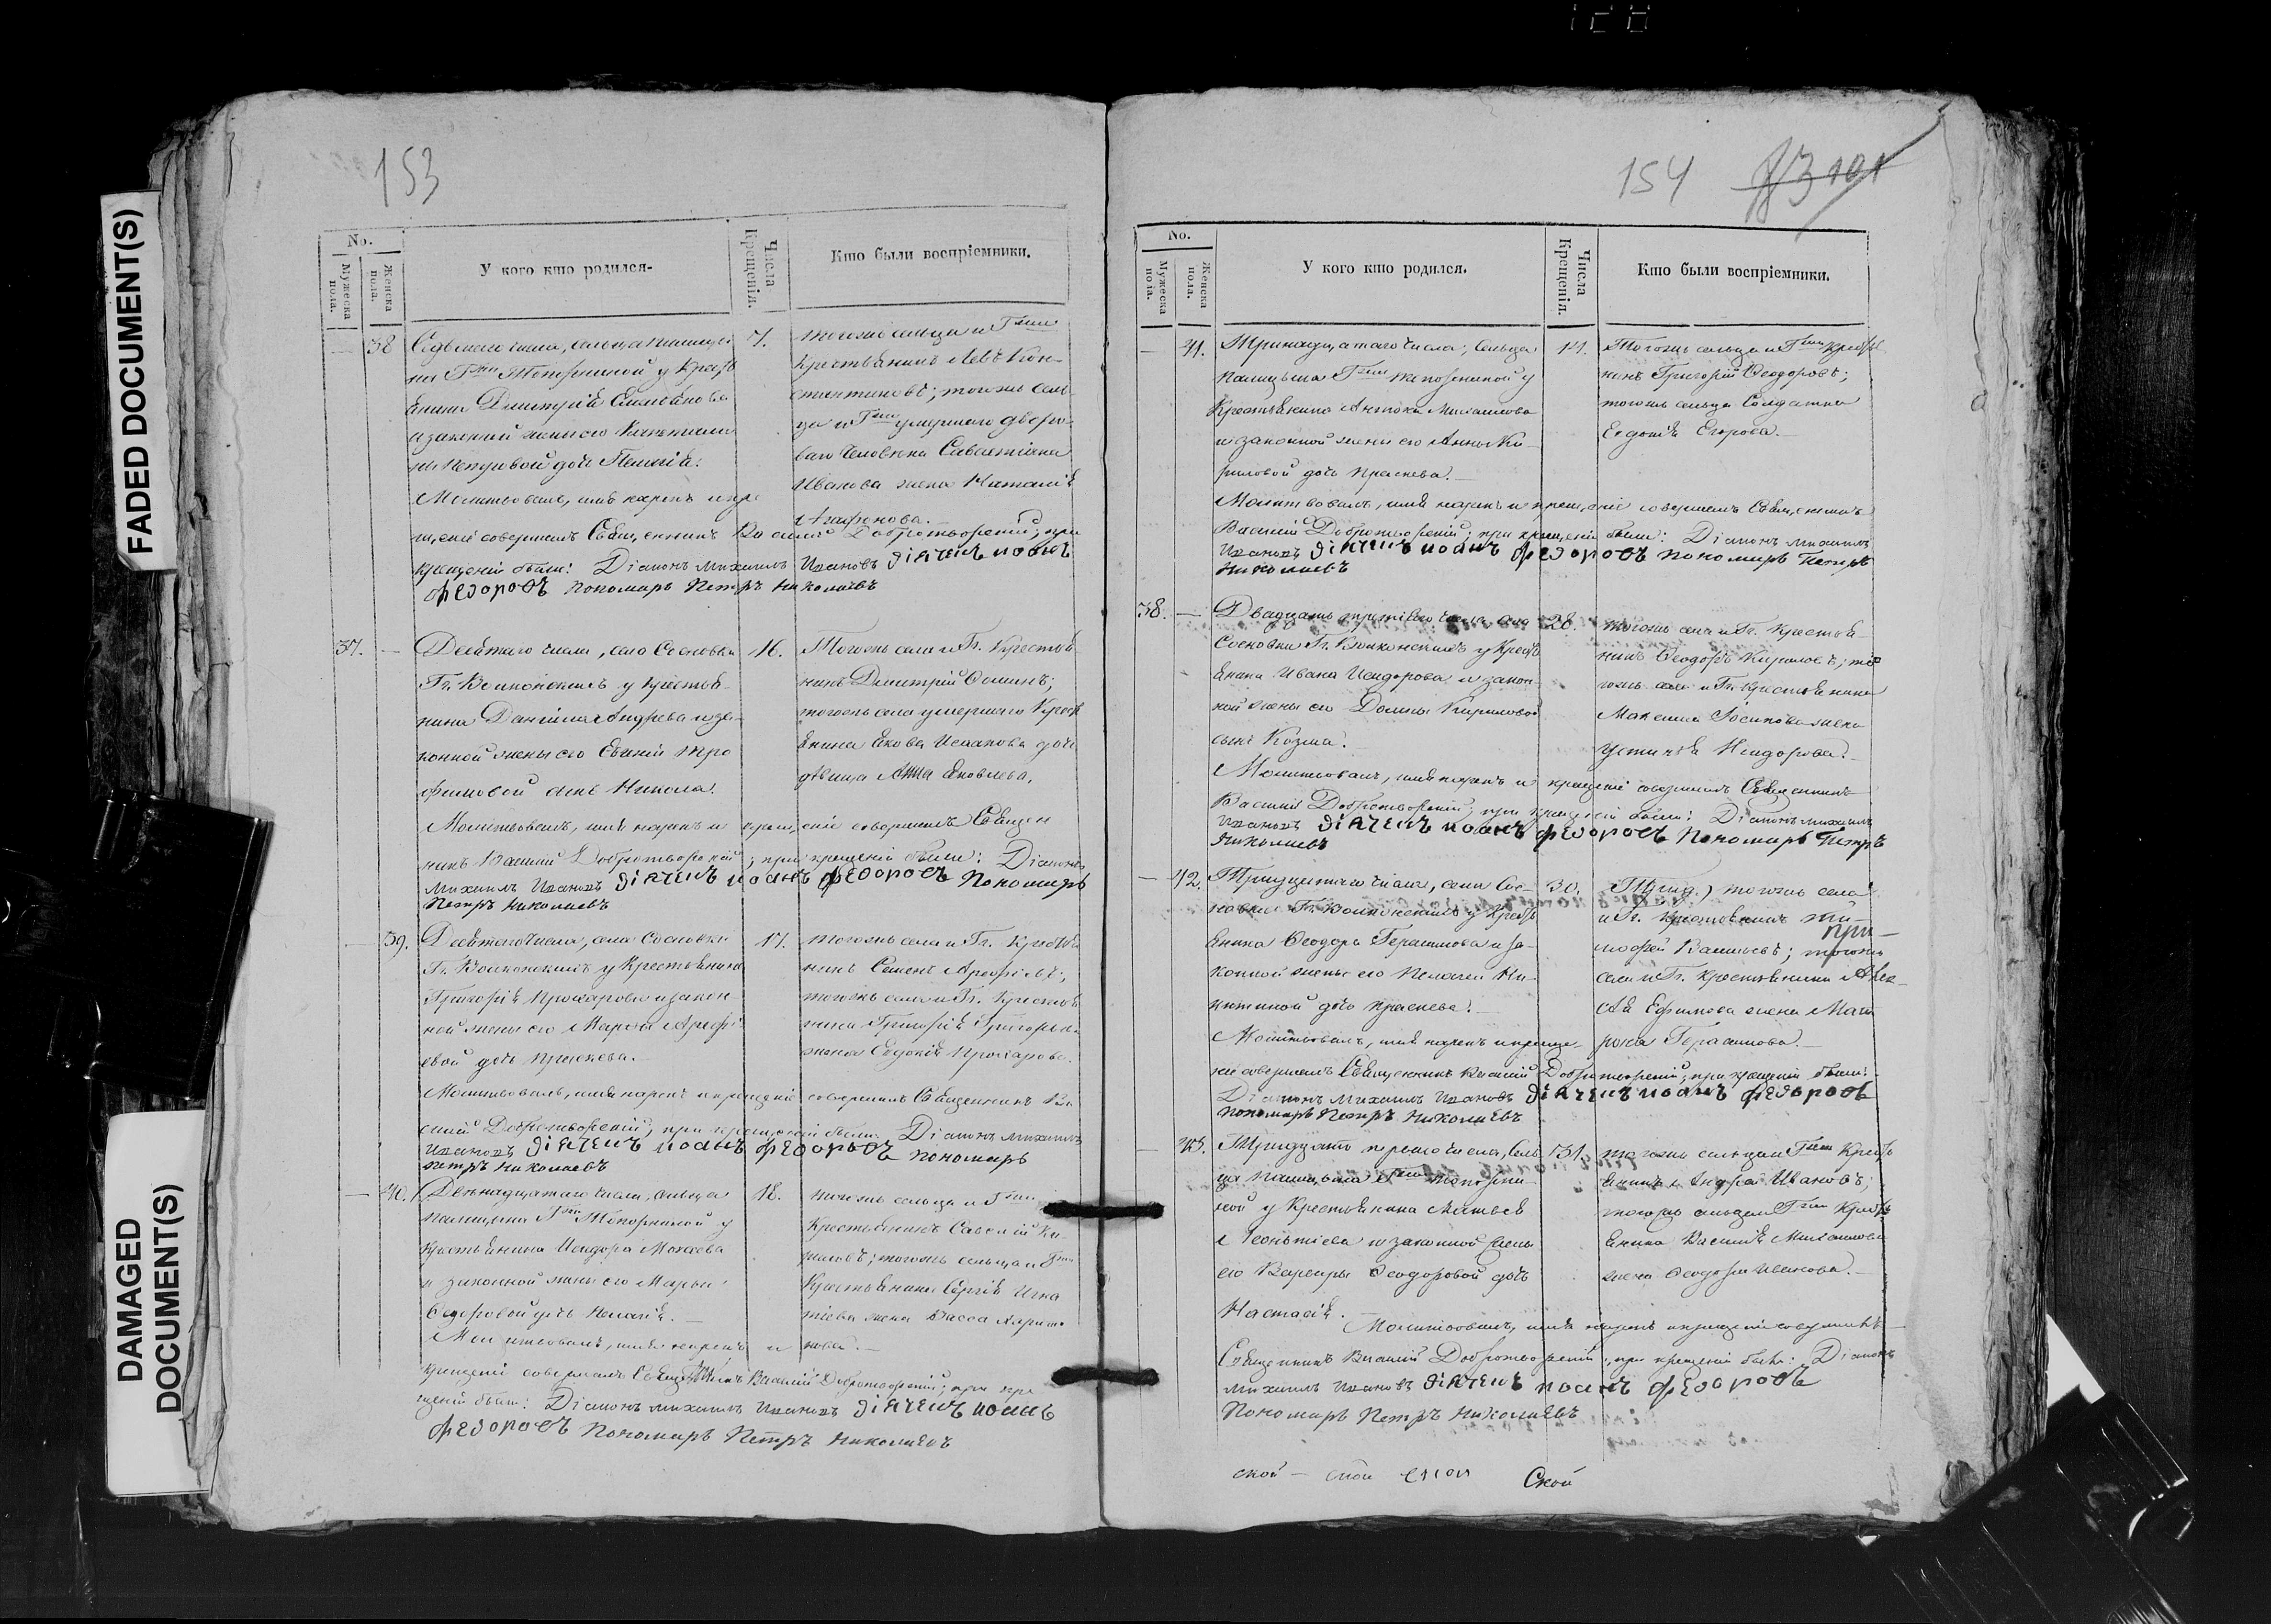 FADED DOCUMENT(S)
DAMAGED
DOCUMENT(S)
153
No.
Мужеска
пола.
Женска
пола.
У кого кто родился-
Числа
Крещенія.
Кто были воспріемники.
38
Седьмаго числа, сельца
Топорниной у Крестья
янина Димитрія
и законной жены его
Петровой дочь Пелагія.
Молитвовалъ, имя нарекъ и кре
щеніе совершилъ Священникъ Василій Добротворскій; при
крещеніи были: Діаконъ Михаилъ Ивановъ Дiячекъ Иоанъ
Федоровъ Пономарь Петръ Николаевъ
7.
тогожъ сельца и Гжи
Крестьянинъ Левъ Кон-
стантиновъ; тогожъ сель-
ца и Гжи умершаго дворо-
ваго человека
Иванова жена Наталія
Агафонова.
37.
Десятаго числа, села Сосновки
Гг. Волконскихъ у крестья-
нина Даніила Андреева и за-
конной жены его Евгеніи Тро
фимовой сынъ Никола.
Молитвовалъ, имя нарекъ и крещеніе совершилъ Священ
никъ Василій Добротворской; при крещеніи были: Діаконъ
Михаилъ Ивановъ Дiячекъ Иоанъ Федоровъ Пономарь
Петръ Николаевъ
16.
Тогожъ села и Гг. Крестья
нинъ Димитрій Фоминъ;
тогожъ села умершаго Крест
янина Якова дочь
девица Анна Яковлева.
39.
числа, села Сосновки
Гг. Волконскихъ у Крестьянина
Григорія Прохарова и закон-
ной жены его Марфы Арефі
евой дочь Праскева.
Молитвовалъ, имя нарекъ и крещеніе совершилъ Священникъ Ва
силій Добротворскій; при крещеніи были: Діаконъ Михаилъ
Ивановъ Дiячекъ Иоанъ Федоровъ Пономарь
Петръ Николаевъ
17.
тогожъ села и Гг. Крестья
нинъ Семенъ Арефіевъ;
тогожъ села и Гг. Крестья
нина Григорія Григорьева
жена Евдокія Прохарова.
40.
Двенадцатаго числа, сельца
Топорниной у
крестьянина Исидора Мокеева
и законной жены его Марьи
Федоровой дочь Пелагія.
Молитвовалъ, имя нарекъ и
крещеніе совершилъ Священникъ Василій Добротворскій; при кре
щеніи были: Діаконъ Михаилъ Ивановъ Дiячекъ Иоанъ
Федоровъ Пономарь Петръ Николаевъ
18.
тогожъ сельца и Гжи
Крестьянинъ Савелій Ки-
риловъ; тогожъ сельца и Гжи
Крестьянина Сергія Игна
тіева жена Васса Харито
нова.
154
No.
Мужеска
пола.
Женска
пола.
У кого кто родился.
Числа
Крещенія.
Кто были воспріемники.
41.
Тринадцатаго числа, Сельца
Гжи Топорниной у
Крестьянина Антона Михаилова
и законной жены его Анны Ки-
риловой дочь Праскева.
Молитвовалъ, имя нарекъ и крещеніе совершилъ Священникъ
Василій Добротворскій; при крещеніи были: Діаконъ Михаилъ
Ивановъ Дiячекъ Иоанъ Федоровъ Пономарь Петръ
Николаевъ
14.
Тогожъ сельца и Гжи Кресть
нинъ Григорій Феодоровъ;
тогожъ сельца Солдатка
Евдокія Егорова.
38.
Двадцать третьяго числа села
Сосновки Гг. Волконскихъ у Крест
янина Ивана Исидорова и закон-
ной жены его Домны Кириловой
сынъ Козма.
Молитвовалъ, имя нарекъ и крещеніе совершилъ Священникъ
Василій Добротворскій; при крещеніи были: Діаконъ Михаилъ
Ивановъ Дiячекъ Иоанъ Федоровъ Пономарь Петръ
Николаевъ
26.
тогожъ села и Гг. Крестья-
нинъ Феодоръ Кириловъ; то
гожъ села и Гг. Крестьянина
Максима жена
Устинья Исидорова.
42.
Тридцатаго числа, села Сос-
новки Гг. Волконскихъ у Крестъ
янина Феодора Герасимова и за-
конной жены его Пелагеи Ни-
китиной дочь Праскева.
Молитвовалъ, имя нарекъ и креще-
ніе совершилъ Священникъ Василій Добротворскій; при крещеніи были:
Діаконъ Михаилъ Ивановъ Дiячекъ Иоанъ Федоровъ
Пономарь Петръ Николаевъ
30.
тогожъ села
и Гг. Крестьянинъ Ти-
мофей Васильевъ; тогожъ
села и Гг. Крестьянина Алек-
сѣя Ефимова жена Мат
рона Герасимова.
43.
Тридцать перваго числа, Сель
ца Гжи Топорни-
ной у Крестьянина Матвея
Леонтіева и законной жены
его Варвары Феодоровой дочь
Настасія.
Молитвовалъ, имя нарекъ и крещеніе совершилъ
Священникъ Василій Добротворскій, при крещеніи были: Діаконъ
Михаилъ Ивановъ Дiячекъ Иоанъ Федоровъ
Пономарь Петръ Николаевъ
31.
тогожъ сельца и Гжи Кресть
янинъ Андрей Ивановъ;
тогожъ сельца и Гжи Кресть
янина Василія Михаилова
жена Феодора Иванова.
ской — ской Ской